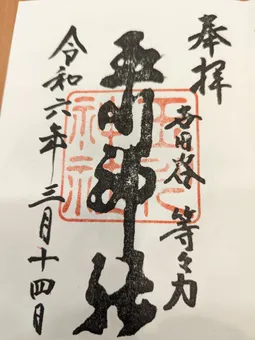 奉拝
世田谷 等々力
玉川神社
玉川
神社
令和六年三月十四日